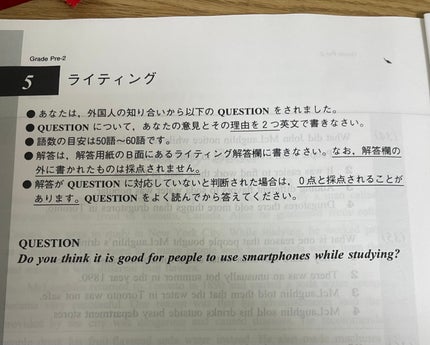 Grade Pre-2
5 ライティング
● あなたは、外国人の知り合いから以下の QUESTION をされました。
● QUESTION について、あなたの意見とその理由を2つ英文で書きなさい。
● 語数の目安は50語~60語です。
● 解答は、解答用紙のB面にあるライティング解答欄に書きなさい。なお、解答欄の
外に書かれたものは採点されません。
● 解答が QUESTION に対応していないと判断された場合は、0点と採点されることが
あります。QUESTION をよく読んでから答えてください。
QUESTION
Do you think it is good for people to use smartphones while studying?